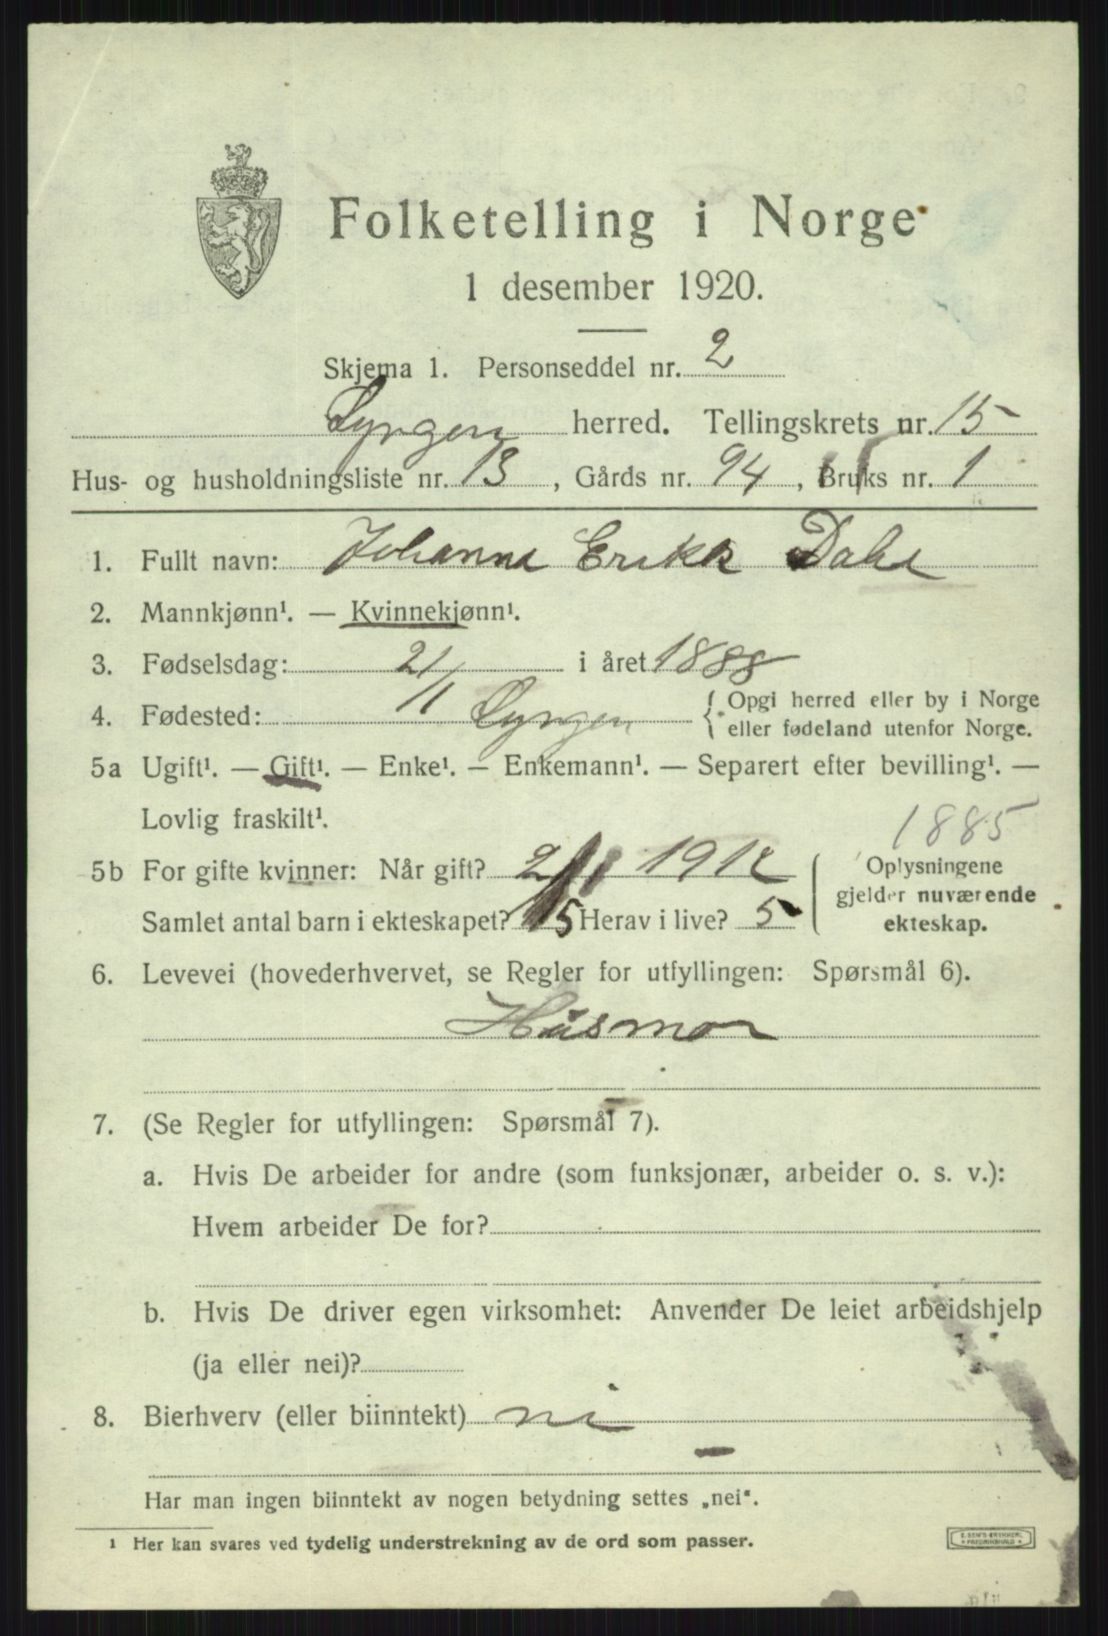 Folketelling i Norge
1 desember 1920.
Skjema 1. Personseddel nr. 2
Lyngen herred. Tellingskrets nr. 15
Hus- og husholdningsliste nr. 13, Gårds nr. 94, Bruks nr. 1
1. Fullt navn: Johanna Erikk Dahl
2. Mannkjønn¹. — Kvinnekjønn¹.
3. Fødselsdag: 21/11 i året 1888
4. Fødested: Lyngen { Opgi herred eller by i Norge
eller fødeland utenfor Norge.
5a Ugift¹. — Gift¹. — Enke¹. — Enkemann¹. — Separert efter bevilling¹. —
Lovlig fraskilt¹.
1885
5b For gifte kvinner: Når gift? 2/11 1912
Samlet antal barn i ekteskapet? 5 Herav i live? 5
Oplysningene
gjelder nuværende
ekteskap.
6. Levevei (hovederhvervet, se Regler for utfyllingen: Spørsmål 6).
Husmor
7. (Se Regler for utfyllingen: Spørsmål 7).
a. Hvis De arbeider for andre (som funksjonær, arbeider o. s. v.):
Hvem arbeider De for?
b. Hvis De driver egen virksomhet: Anvender De leiet arbeidshjelp
(ja eller nei)?
8. Bierhverv (eller biinntekt) ni
Har man ingen biinntekt av nogen betydning settes „nei“.
¹ Her kan svares ved tydelig understrekning av de ord som passer.